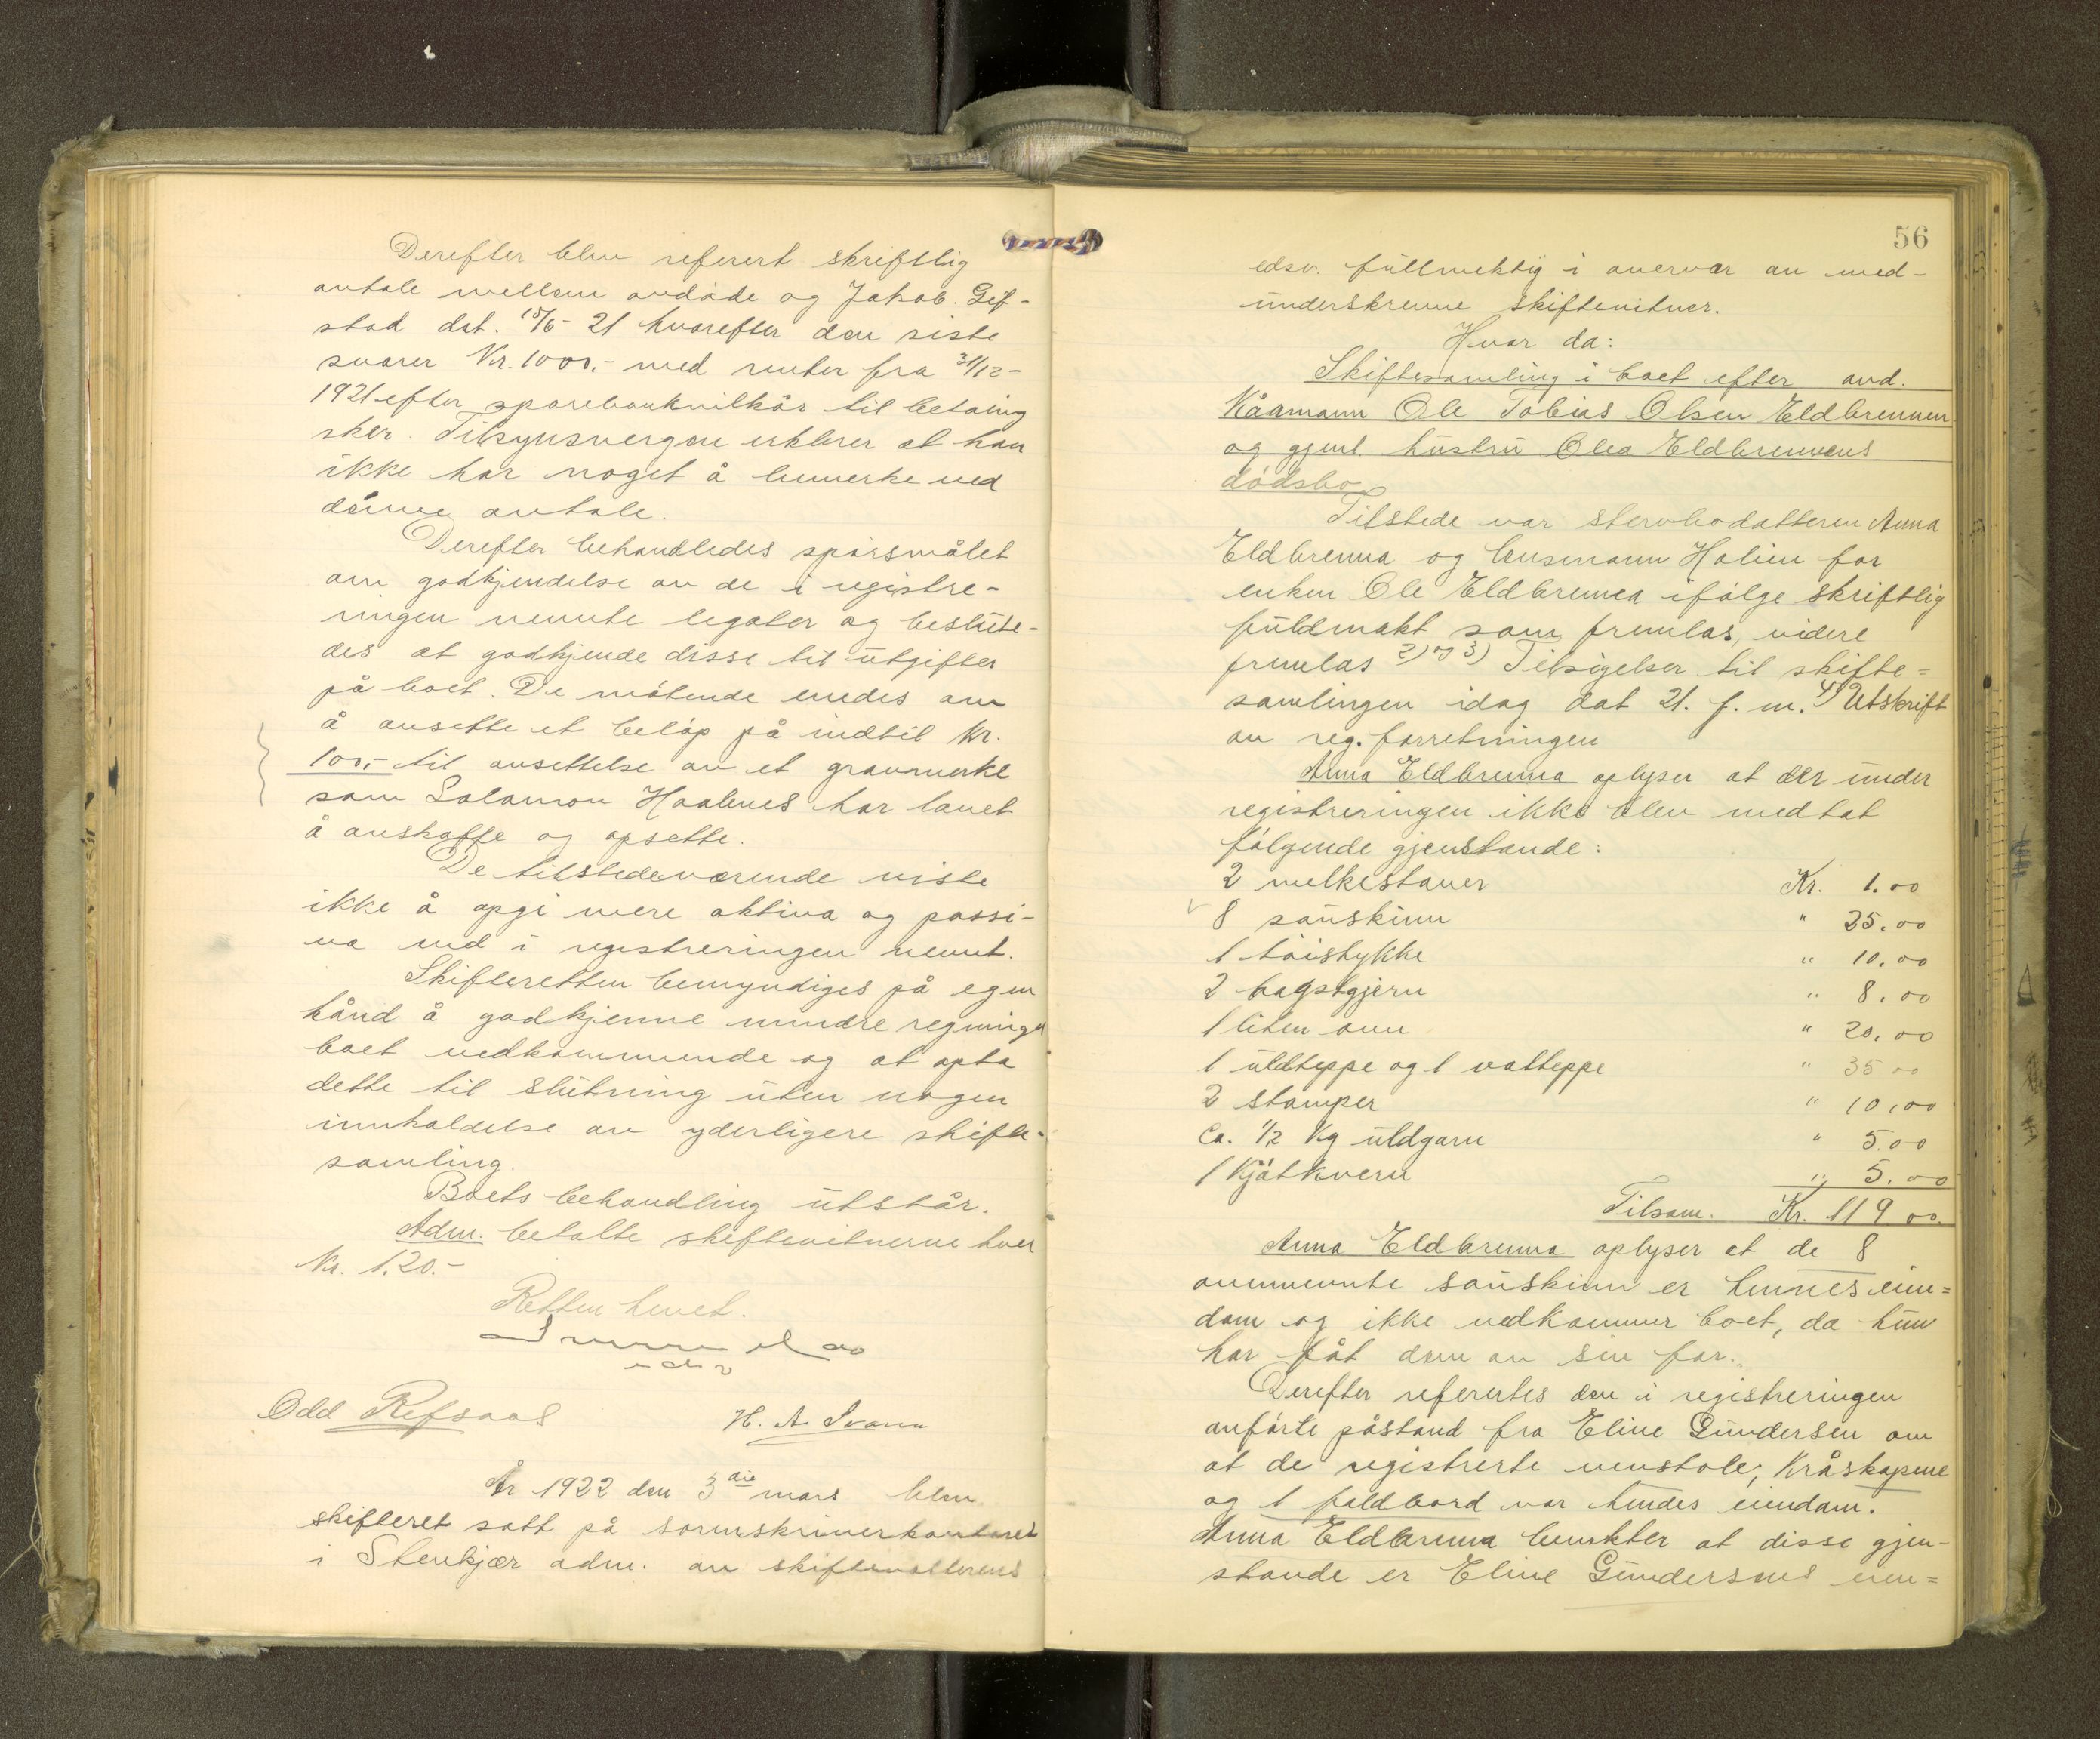 Derefter blev referert skriftlig
avtale mellem avdøde og Jakob Gif-
stad dat. 10/6-21 hvorefter den siste
svarer Kr. 1000,- med renter fra 31/12-
1921 efter sparebankvilkår til betaling
sker. Tilsynsvergen erklærer at han
ikke har noget å bemerke ved
denne avtale.
Derefter behandledes spørsmålet
om godkjendelse av de i registre-
ringen nevnte legater og beslutte-
des at godkjende disse til utgifter
på boet. De møtende enedes om
å ansette et beløp på indtil kr.
100,- til ansettelse av et gravmerke
som Salamon Haabnes har lovet
å anskaffe og opsette.
De tilstedeværende viste
ikke å opgi mere aktiva og passi-
va end i registreringen nevnt.
Skifteretten bemyndiges på egen
hånd å godkjenne mindre regninger
boet vedkommende og at opta
dette til slutning uten nogen
innkaldelse av yderligere skifte-
samling.
Boets behandling utstår.
Adm. betalte skiftevitnerne hver
Kr. 1.20.-
Retten hevet.
edsv
Odd Refsaas H. A. Svann
År 1922 den 3die mars blev
skifteret satt på sorenskriverkontoret
i Stenkjær adm. av skifteforvalterens
56
edsv. fullmektig i overvær av med-
underskrevne skiftevitner.
Hvor da:
Skiftesamling i boet efter avd.
Kåamann Ole Tobias Olsen Eldbrennen
og gjenl. hustru Olea Eldbrennens
dødsbo
Tilstede var stervbodatteren Anna
Eldbrenna og lensmann Halien for
enken Ole Eldbrenna ifølge skriftlig
fuldmakt som fremlas, videre
fremlas 2) og 3) Tilsigelser til skifte=
samlingen idag dat 21. f. m. 4) Utskrift
av reg. forretningen
Anna Eldbrenna oplyser at der under
registreringen ikke blev medtat
følgende gjenstande:
2 melkestaver Kr. 1.00
8 sauskinn " 25.00
1 tøistykke " 10.00
2 bagstgjern " 8.00
1 liten ovn " 20.00
1 uldteppe og 1 vatteppe " 35 00
2 stamper " 10.00
Ca. 1/2 kg uldgarn " 5.00
1 kjøtkvern " 5.00
Tilsam. Kr. 119 00.
Anna Eldbrenna oplyser at de 8
ovennevnte sauskinn er hennes eien=
dom og ikke vedkommer boet, da hun
har fåt dem av sin far.
Derefter refereres den i registreringen
anførte påstand fra Eline Gundersen om
at de registrerte vevstole, kråskapene
og 1 foldbord var hendes eiendom.
Anna Eldbrenna benekter at disse gjen-
stande er Eline Gundersens eien=